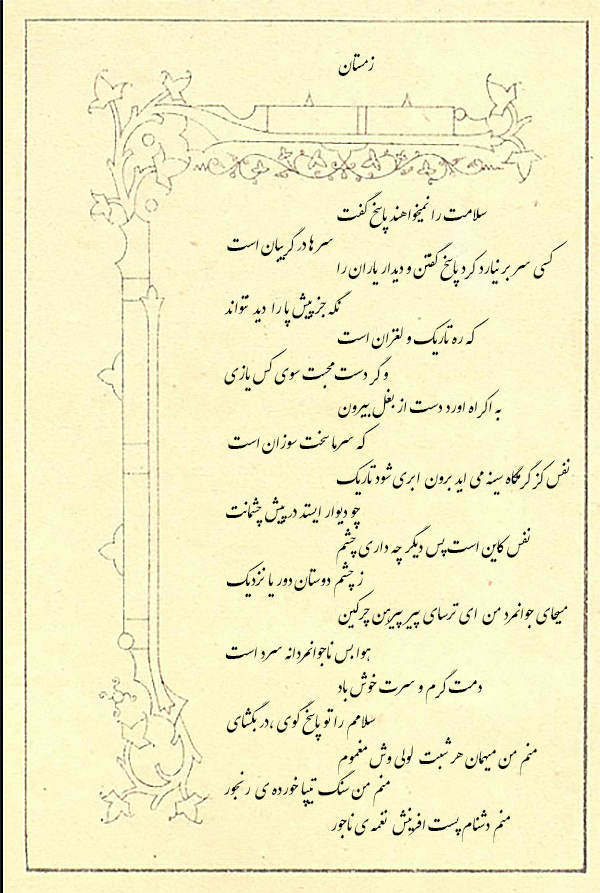 زمستان
سلامت را نمیخواهند پاسخ گفت
سرها در گریبان است
کسی سر بر نیارد کرد پاسخ گفتن و دیدار یاران را
نگه جز پیش پا را دید نتواند
که ره تاریک و لغزان است
وگر دست محبت سوی کس یازی
به اکراه اورد دست از بغل بیرون
که سرما سخت سوزان است
نفس کز گرمگاه سینه می اید برون ابری شود تاریک
چو دیوار ایستد در پیش چشمانت
نفس کاین است پس دیگر چه داری چشم
ز چشم دوستان دور یا نزدیک
میحای جوانمرد من ای ترسای پیر پیرهن چرکین
هوا بس ناجوانمردانه سرد است
دمت گرم و سرت خوش باد
سلامم را تو پاسخ گوی ،در بگشای
منم من میهمان هر شبت لولی وش مغموم
منم من سنگ تیپا خورده ی رنجور
منم دشنام پست افرینش نغمه ی ناجور